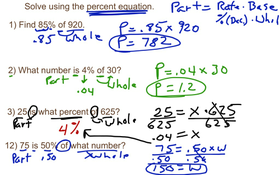 Solve using the percent equation.
Part = Rate · Base
%(Dec) · Whole
1) Find 85% of 920.
.85 Whole
P = .85 x 920
P = 782
2) What number is 4% of 30?
Part = .04 Whole
P = .04 • 30
P = 1.2
3) 25 is what percent of 625?
Part Whole
4%
25 = x . 625
625 625
.04 = x
12) 75 is 50% of what number?
Part .50 x Whole
75 = .50 x W
.50 .50
150 = W